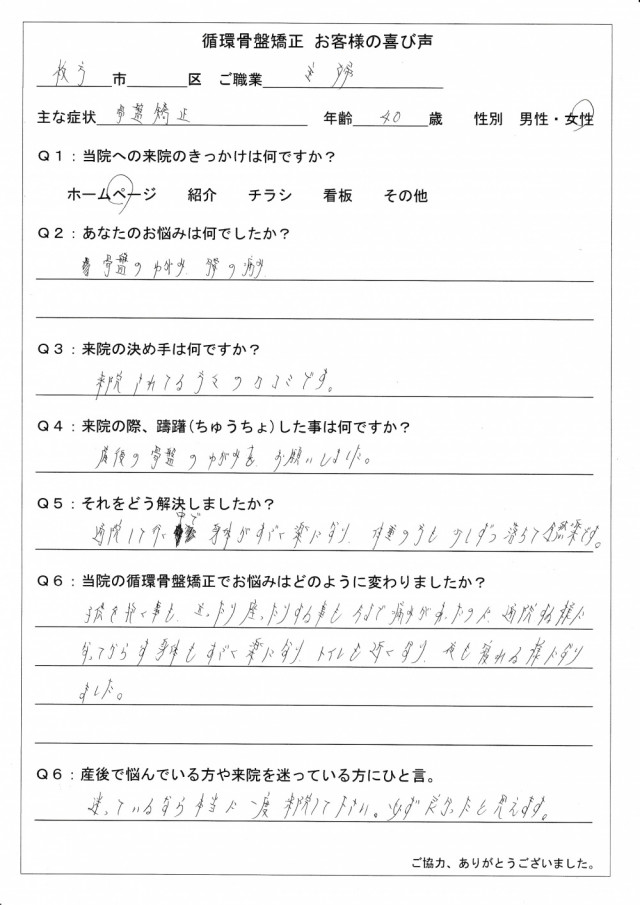 循環骨盤矯正 お客様の喜び声
枚方 市 区 ご職業 主婦
主な症状 骨盤矯正 年齢 40 歳 性別 男性・女性
Q1：当院への来院のきっかけは何ですか？
ホームページ 紹介 チラシ 看板 その他
Q2：あなたのお悩みは何でしたか？
骨盤のゆがみ 腰の痛み
Q3：来院の決め手は何ですか？
来院されてる方々の口コミです。
Q4：来院の際、躊躇(ちゅうちょ)した事は何ですか？
産後の骨盤のゆがみを お願いしました。
Q5：それをどう解決しましたか？
通院して行く中で 身体がすごく楽になり、体重の方も少しずつ落ちて今は楽です。
Q6：当院の循環骨盤矯正でお悩みはどのように変わりましたか？
子供を抱く事も、立ったり座ったりする事も今まで痛みがあったのに、通院する様に
なってからは身体もすごく楽になり、トイレも近くなり、夜も寝れる様になり
ました。
Q6：産後で悩んでいる方や来院を迷っている方にひと言。
迷っているなら本当に一度来院して下さい。必ず良かったと思えます。
ご協力、ありがとうございました。